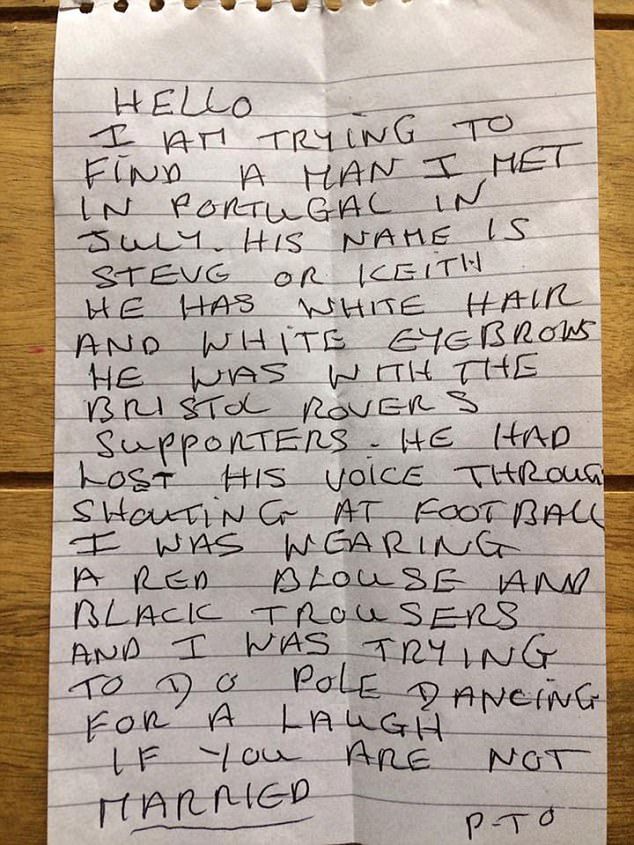 HELLO
I AM TRYING TO
FIND A MAN I MET
IN PORTUGAL IN
JULY. HIS NAME IS
STEVE OR KEITH
HE HAS WHITE HAIR
AND WHITE EYEBROWS
HE WAS WITH THE
BRISTOL ROVERS
SUPPORTERS - HE HAD
LOST HIS VOICE THROUG
SHOUTING AT FOOTBALL
I WAS WEARING
A RED BLOUSE AND
BLACK TROUSERS
AND I WAS TRYING
TO DO POLE DANCING
FOR A LAUGH
IF YOU ARE NOT
MARRIED
P-TO